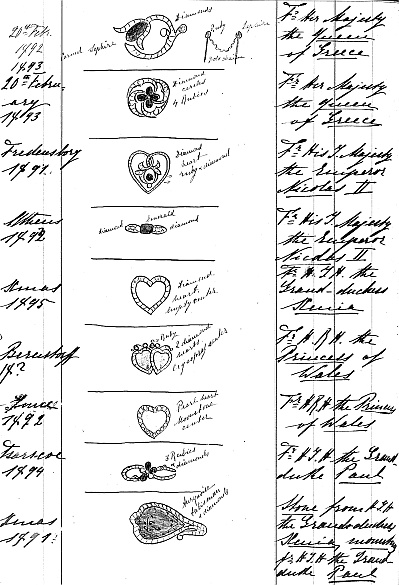 20th Feb.
1892
1893
Diamonds
Ruby
Sapphire
Fr Her Majesty
the Queen
of Greece
20th Febru-
ary
1893
Diamond
circles
4 Rubies
Fr Her Majesty
the Queen
of Greece
Fredensborg
1891.
Diamond
heart
ruby & diamond
Fr His I. Majesty
the Emperor
Nicolas II
Athens
1892
diamond
Emerald
diamond
Fr His I. Majesty
the Emperor
Nicolas II
Xmas
1895
Diamond
heart
empty center
Fr H. I. H. the
Grand-duchess
Xenia
Bernstorff
Ruby
2 diamond
hearts
center
Fr H. R. H. the
Princess of
Wales
1892
Pearl heart
Moonstone
center
Fr H R H the Princess
of Wales
1894
3 Rubies
diamonds
Fr H. I. H the Grand-
duke Paul
Xmas
diamonds
Stone from H I H
the Grand-duchess
Xenia, mounting
fr H. I. H the Grand-
duke Paul